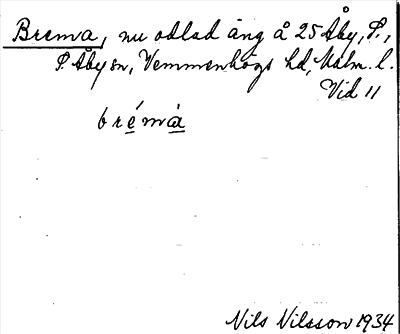 Brema, nu odlad äng å 25 Åby, S.,
S. Åby sn, Vemmenhögs hd, Malm. l.
Vid 11
brémà
Nils Nilsson 1934